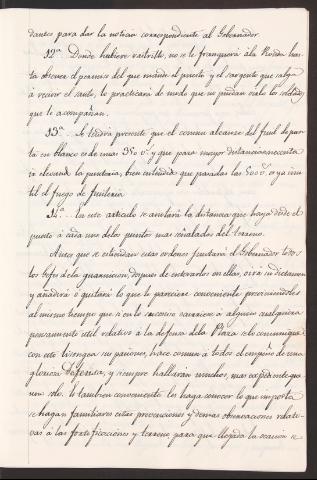 dantes para dar la noticia correspondiente al Gobernador.
12.ª Donde hubiere rastrillo, no se le franqueará á la Ronda has-
ta obtener el permiso del que mande el puesto, y el sargento que salga
á recivir el santo, lo practicará de modo que no puedan oirlo los soldados
que le acompañan.
13.ª Se tendrá presente que el comun alcance del fusil de pun-
ta en blanco es de unas 350 v.ˢ y que para mayor distancia se necesita-
rá elevarle la puntería, bien entendido que pasadas las 500 v.ˢ es ya inu-
til el fuego de fusilería.
14.ª En este articulo se anotará la distancia que haya desde el
puesto á cada uno de los puntos mas señalados del terreno.
Antes que se estiendan estas ordenes juntará el Gobernador todos
los Gefes de la guarnicion, despues de enterarlos en ellas, oirá su dictamen
y añadirá ó quitará lo que le pareciere conveniente previniendoles
al mismo tiempo que si en lo succesivo ocurriere á alguno cualquiera
pensamiento util relativo á la defensa de la Plaza se lo comunique:
con esto lisongea sus pasiones, hace comun á todos el empeño de una
gloriosa defensa, y siempre hallarán muchos, mas expediente que
uno solo. Es tambien conveniente les haga conocer lo que importa
se hagan familiares estas prevenciones y demas observaciones relati-
vas á las fortificaciones y terreno para que llegada la ocasion se